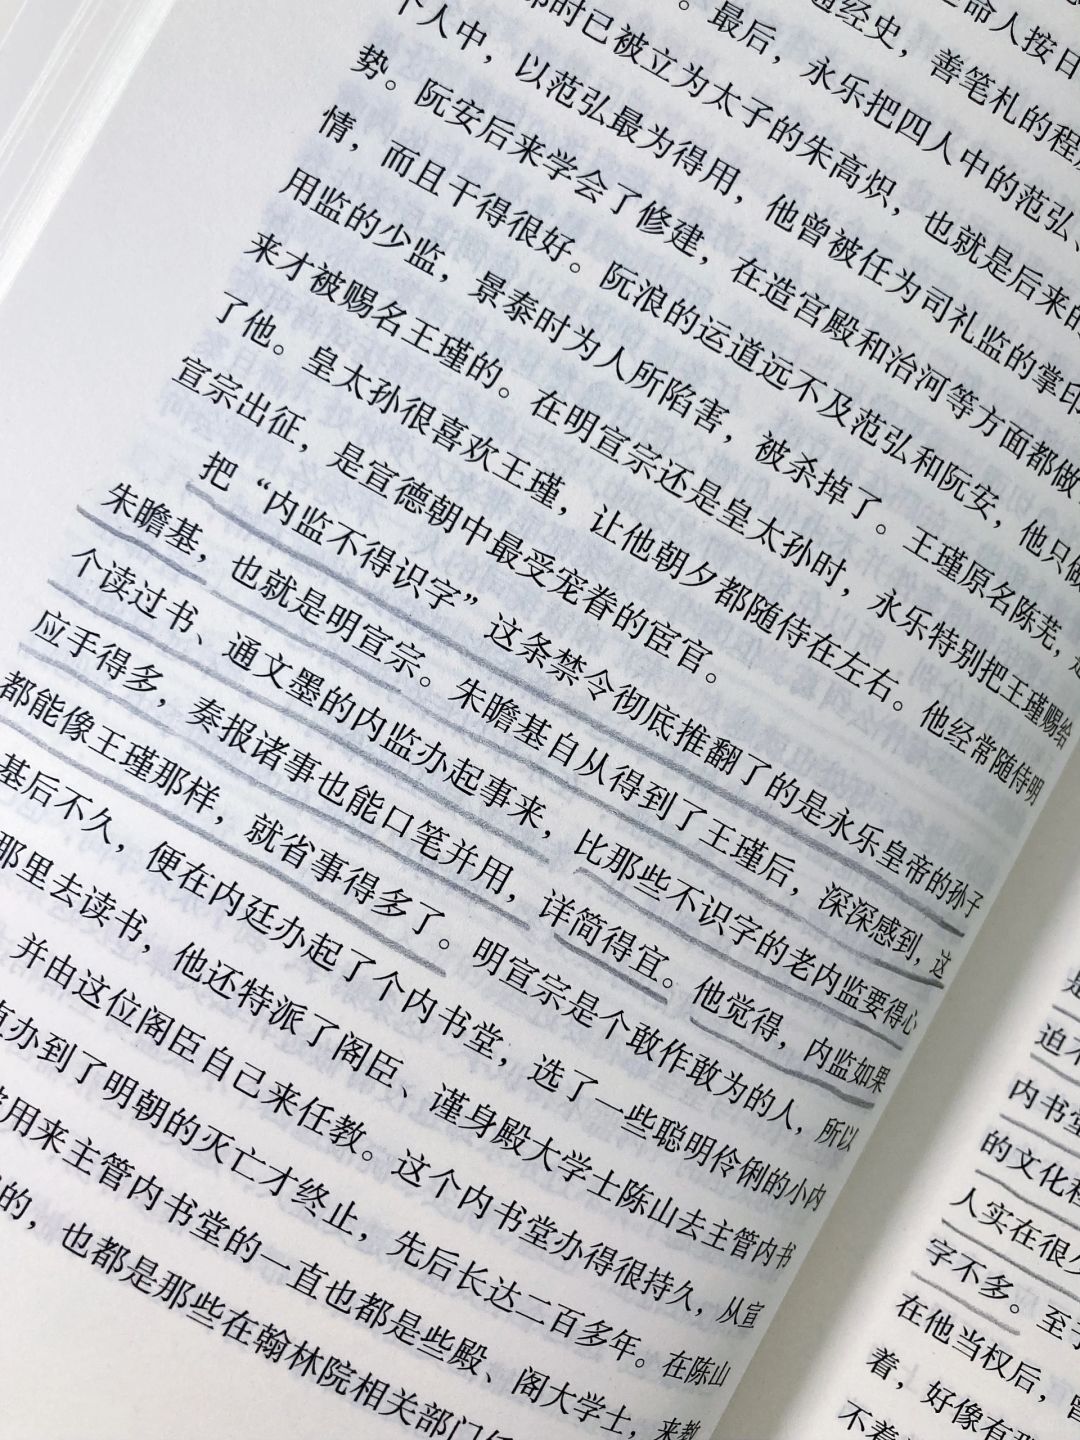 命人按日
通经史，善笔札的程
。最后，永乐把四人中的范弘、
时已被立为太子的朱高炽，也就是后来的
个人中，以范弘最为得用，他曾被任为司礼监的掌印
势。阮安后来学会了修建，在造宫殿和治河等方面都做
情，而且干得很好。阮浪的运道远不及范弘和阮安，他只做
用监的少监，景泰时为人所陷害，被杀掉了。王瑾原名陈芜，是
来才被赐名王瑾的。在明宣宗还是皇太孙时，永乐特别把王瑾赐给
了他。皇太孙很喜欢王瑾，让他朝夕都随侍在左右。他经常随侍明
宣宗出征，是宣德朝中最受宠眷的宦官。
把“内监不得识字”这条禁令彻底推翻了的是永乐皇帝的孙子
朱瞻基，也就是明宣宗。朱瞻基自从得到了王瑾后，深深感到，这
个读过书、通文墨的内监办起事来，比那些不识字的老内监要得心
应手得多，奏报诸事也能口笔并用，详简得宜。他觉得，内监如果
都能像王瑾那样，就省事得多了。明宣宗是个敢作敢为的人，所以
基后不久，便在内廷办起了个内书堂，选了一些聪明伶俐的小内
那里去读书，他还特派了阁臣、谨身殿大学士陈山去主管内书
，并由这位阁臣自己来任教。这个内书堂办得很持久，从宣
直办到了明朝的灭亡才终止，先后长达二百多年。在陈山
用来主管内书堂的一直也都是些殿、阁大学士，来教
的，也都是那些在翰林院相关部门
是
迫不
内书堂
的文化
人实在很
字不多。至于
在他当权后，
着，好像有
不着